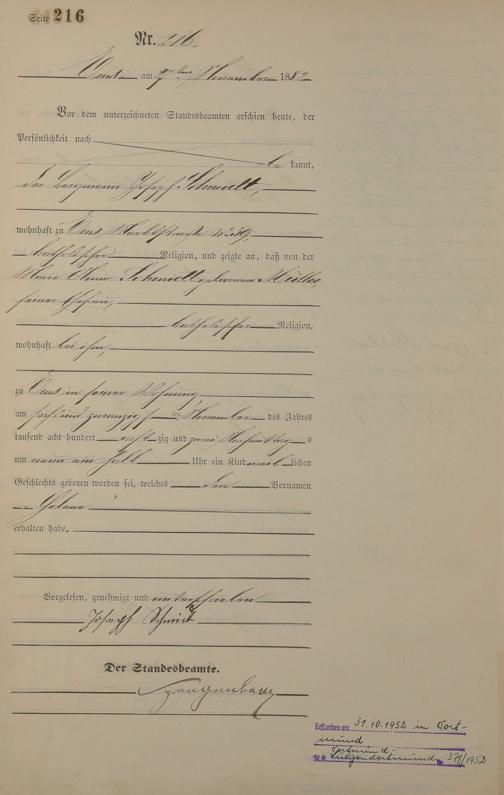 Seite 216
Nr. 216.
Ems am 27ten November 1882
Vor dem unterzeichneten Standesbeamten erschien heute, der
Persönlichkeit nach
be kannt,
der Bergmann Joseph Schmidt,
wohnhaft zu Ems,
katholischer Religion, und zeigte an, daß von der
Maria Anna Schmidt geborenen Müller,
seiner Ehefrau,
katholischer Religion,
wohnhaft bei ihm,
zu Ems in seiner Wohnung,
am sechs und zwanzigsten November des Jahres
tausend acht hundert acht zig und zwei Nachmittag s
um neun ein halb Uhr ein Kind weib lichen
Geschlechts geboren worden sei, welches den Vornamen
"Helena"
erhalten habe.
Vorgelesen, genehmigt und unterschrieben
Joseph Schmidt
Der Standesbeamte.
Gestorben am 31.10.1952 in Dort-
mund
St.A. Dortmund-
Lütgendortmund Nr. 378/1952